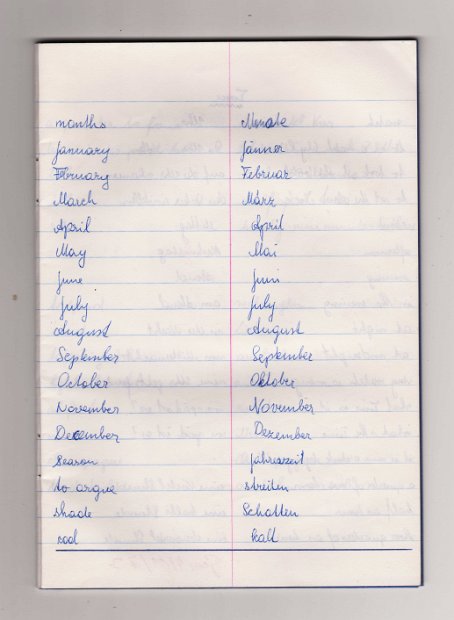 months Monate
January Jänner
February Februar
March März
April April
May Mai
June Juni
July July
August August
September September
October Oktober
November November
December Dezember
season Jahreszeit
to argue streiten
shade Schatten
cool kalt